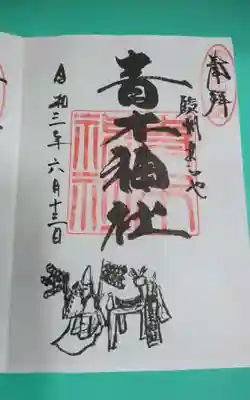 奉拝
駿州あをや
青木神社
令和三年六月十三日